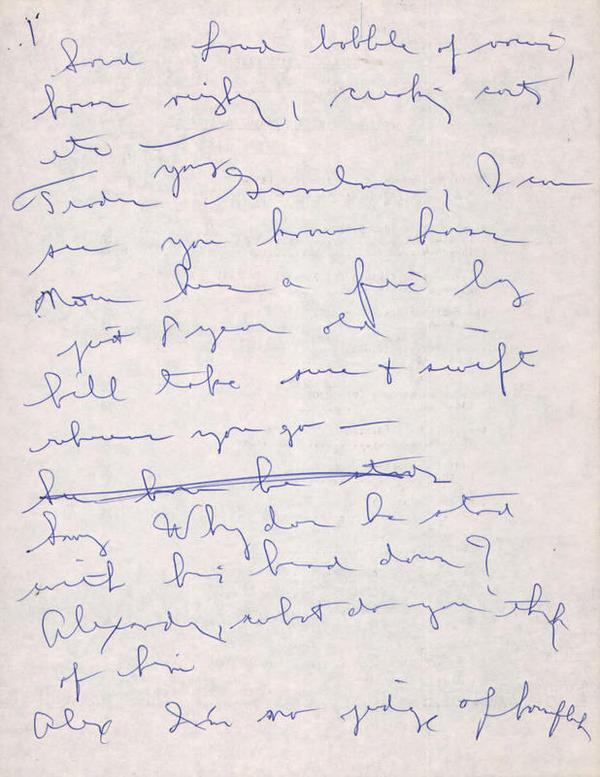 1
Sound loud babble of voices,
horses neighing, creaking carts
etc —
Trader Young Gentleman, I can
see you know horses
Now here is a fine bay
just 8 year old
he'll take sure + swift
where you go —
See how he stands
Why does he stand
with his head down?
Alexander, what do you think
of him
Alex I'm no judge of horseflesh